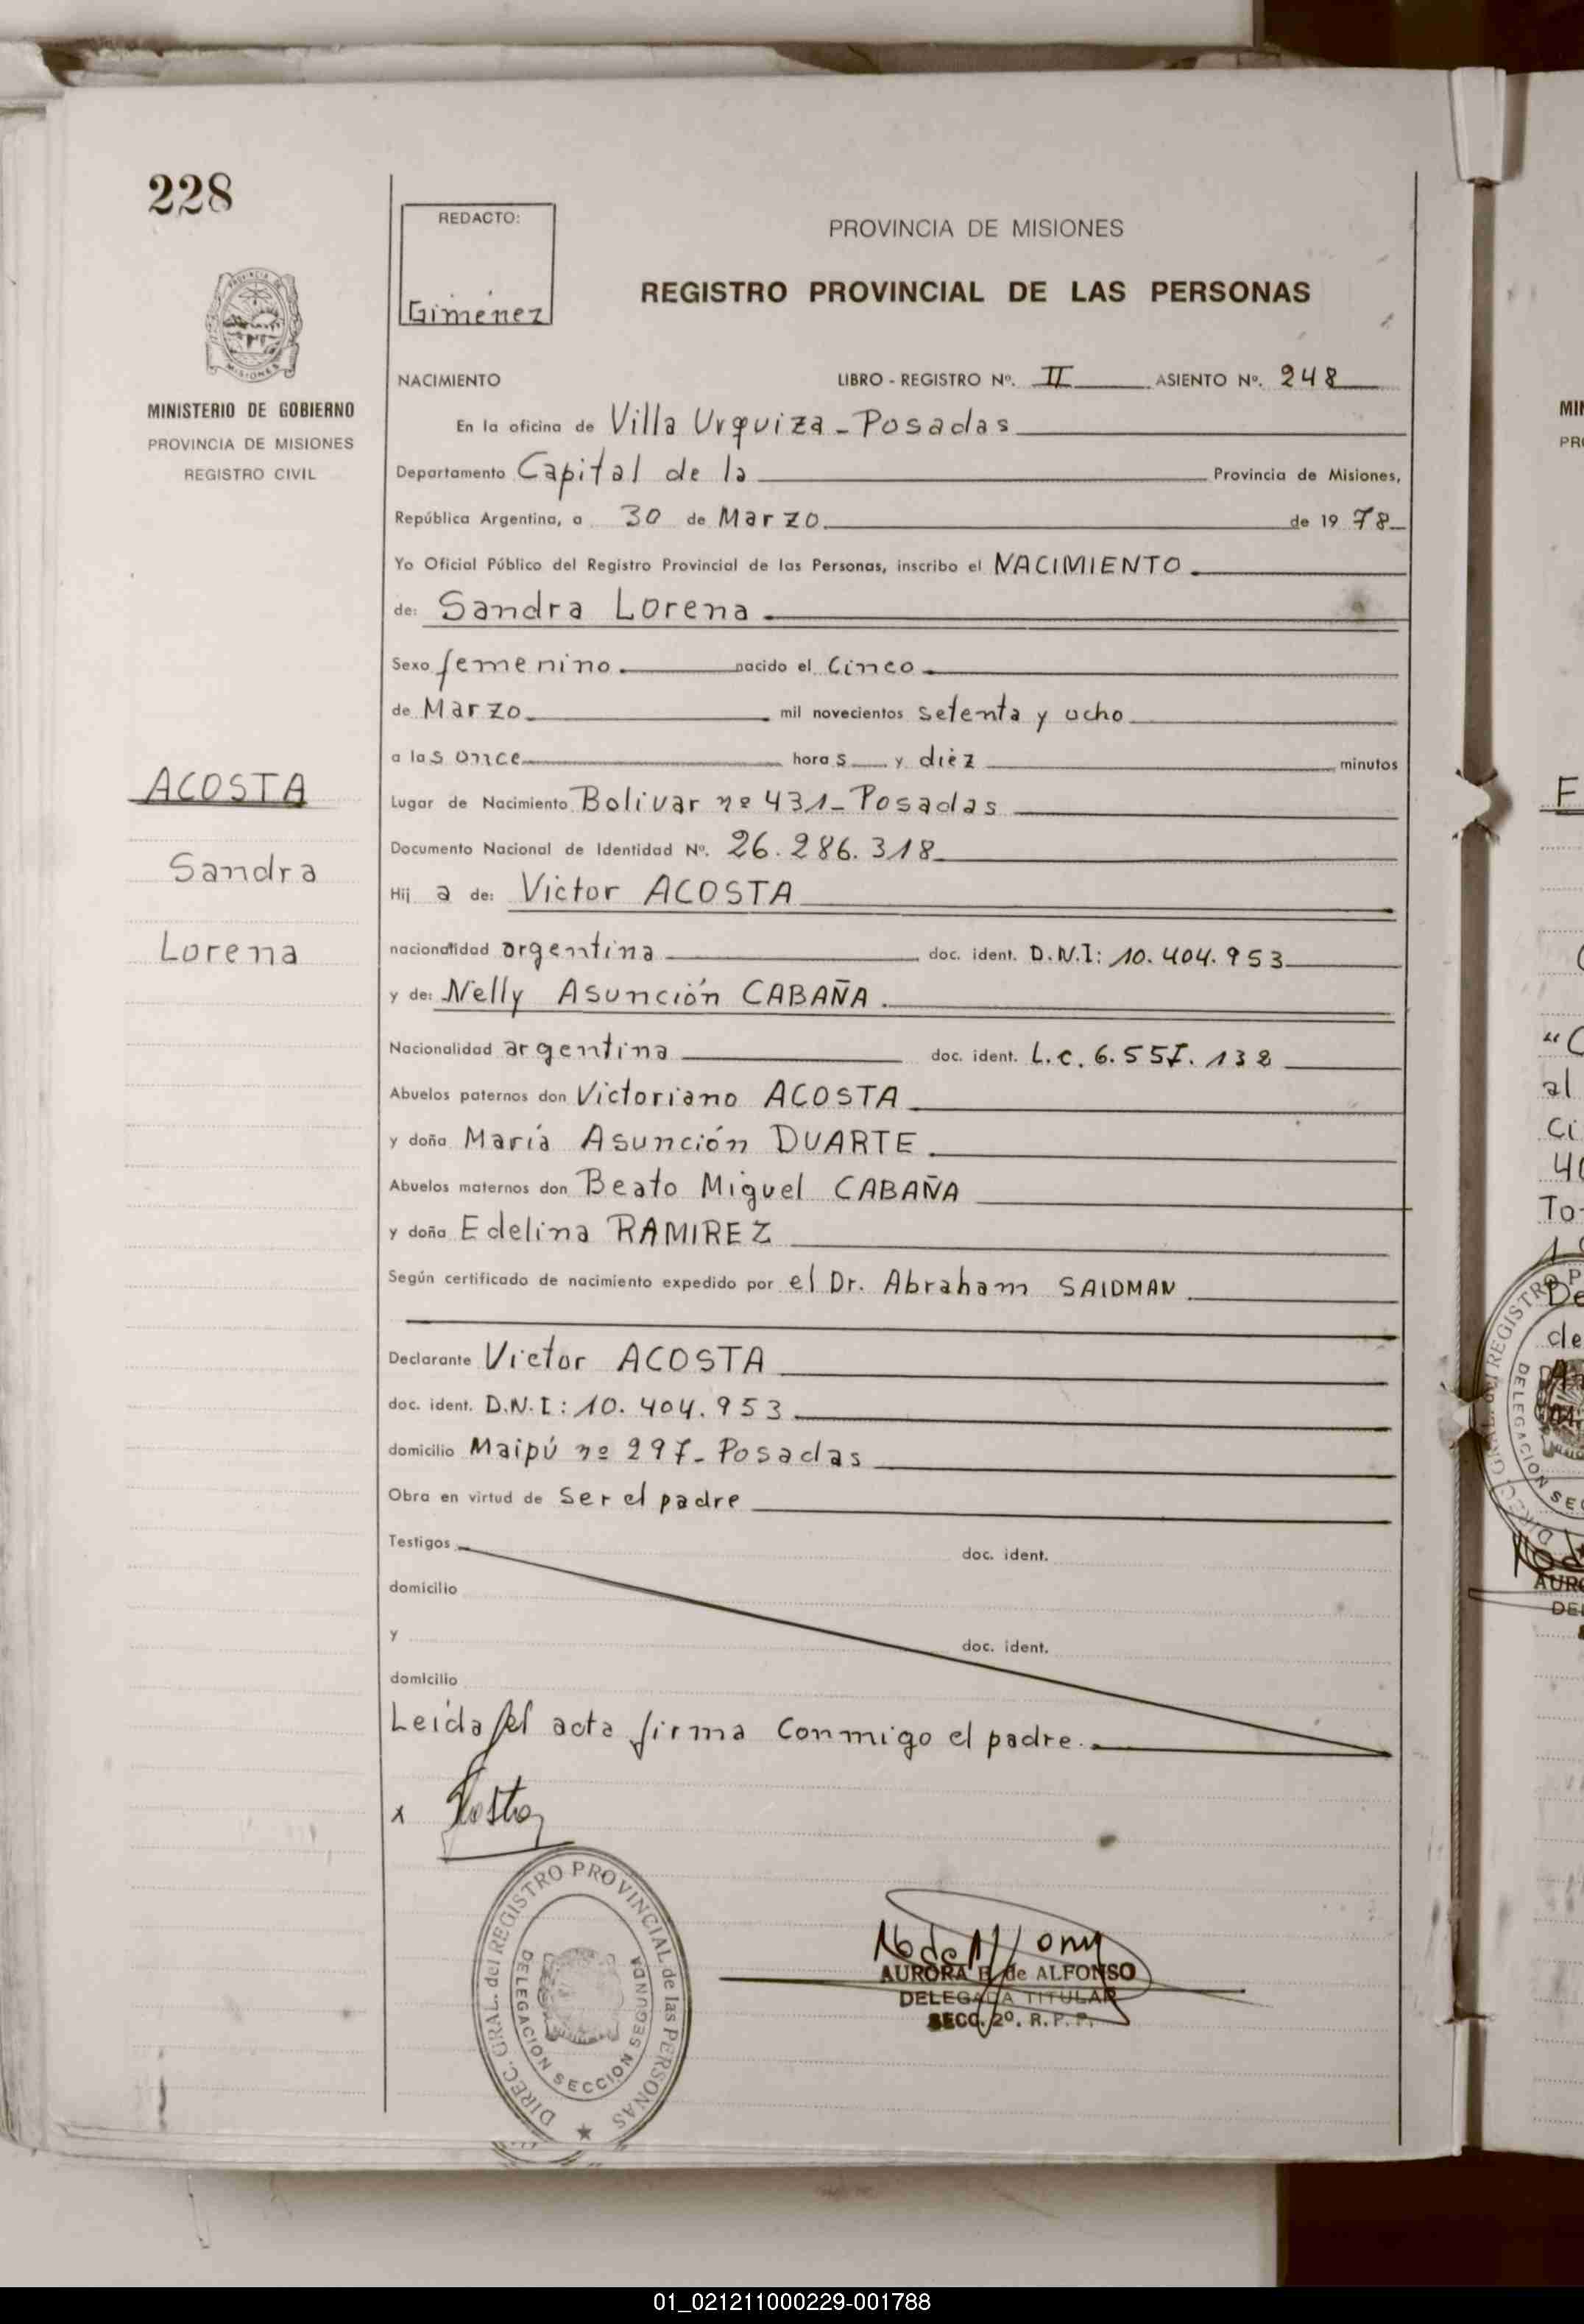 228
PROVINCIA DE MISIONES
MISIONES
MINISTERIO DE GOBIERNO
PROVINCIA DE MISIONES
REGISTRO CIVIL
ACOSTA
Sandra
Lorena
REDACTO:
Gimenez
PROVINCIA DE MISIONES
REGISTRO PROVINCIAL DE LAS PERSONAS
NACIMIENTO LIBRO - REGISTRO Nº. II ASIENTO Nº. 248
En la oficina de Villa Urquiza - Posadas
Departamento Capital de la Provincia de Misiones,
República Argentina, a 30 de Marzo de 1978
Yo Oficial Público del Registro Provincial de las Personas, inscribo el NACIMIENTO
de: Sandra Lorena
Sexo femenino. nacido el Cinco
de Marzo mil novecientos setenta y ocho
a las once horas y diez minutos
Lugar de Nacimiento Bolivar nº 431 - Posadas
Documento Nacional de Identidad Nº. 26.286.318
Hij a de: Victor ACOSTA
nacionalidad argentina doc. ident. D.N.I: 10.404.953
y de: Nelly Asunción CABAÑA
Nacionalidad argentina doc. ident. L.C. 6.557.138
Abuelos paternos don Victoriano ACOSTA
y doña María Asunción DUARTE
Abuelos maternos don Beato Miguel CABAÑA
y doña Edelina RAMIREZ
Según certificado de nacimiento expedido por el Dr. Abraham SAIDMAN
Declarante Victor ACOSTA
doc. ident. D.N.I: 10.404.953
domicilio Maipú nº 297 - Posadas
Obra en virtud de Ser el padre
Testigos doc. ident.
domicilio
y doc. ident.
domicilio
Leida el acta firma Conmigo el padre.
x Acosta
DIREC. GRAL. del REGISTRO PROVINCIAL de las PERSONAS
DELEGACION SECCION SEGUNDA
AURORA B. de ALFONSO
DELEGADA TITULAR
SECC. 2º. R.P.P.
01_021211000229-001788